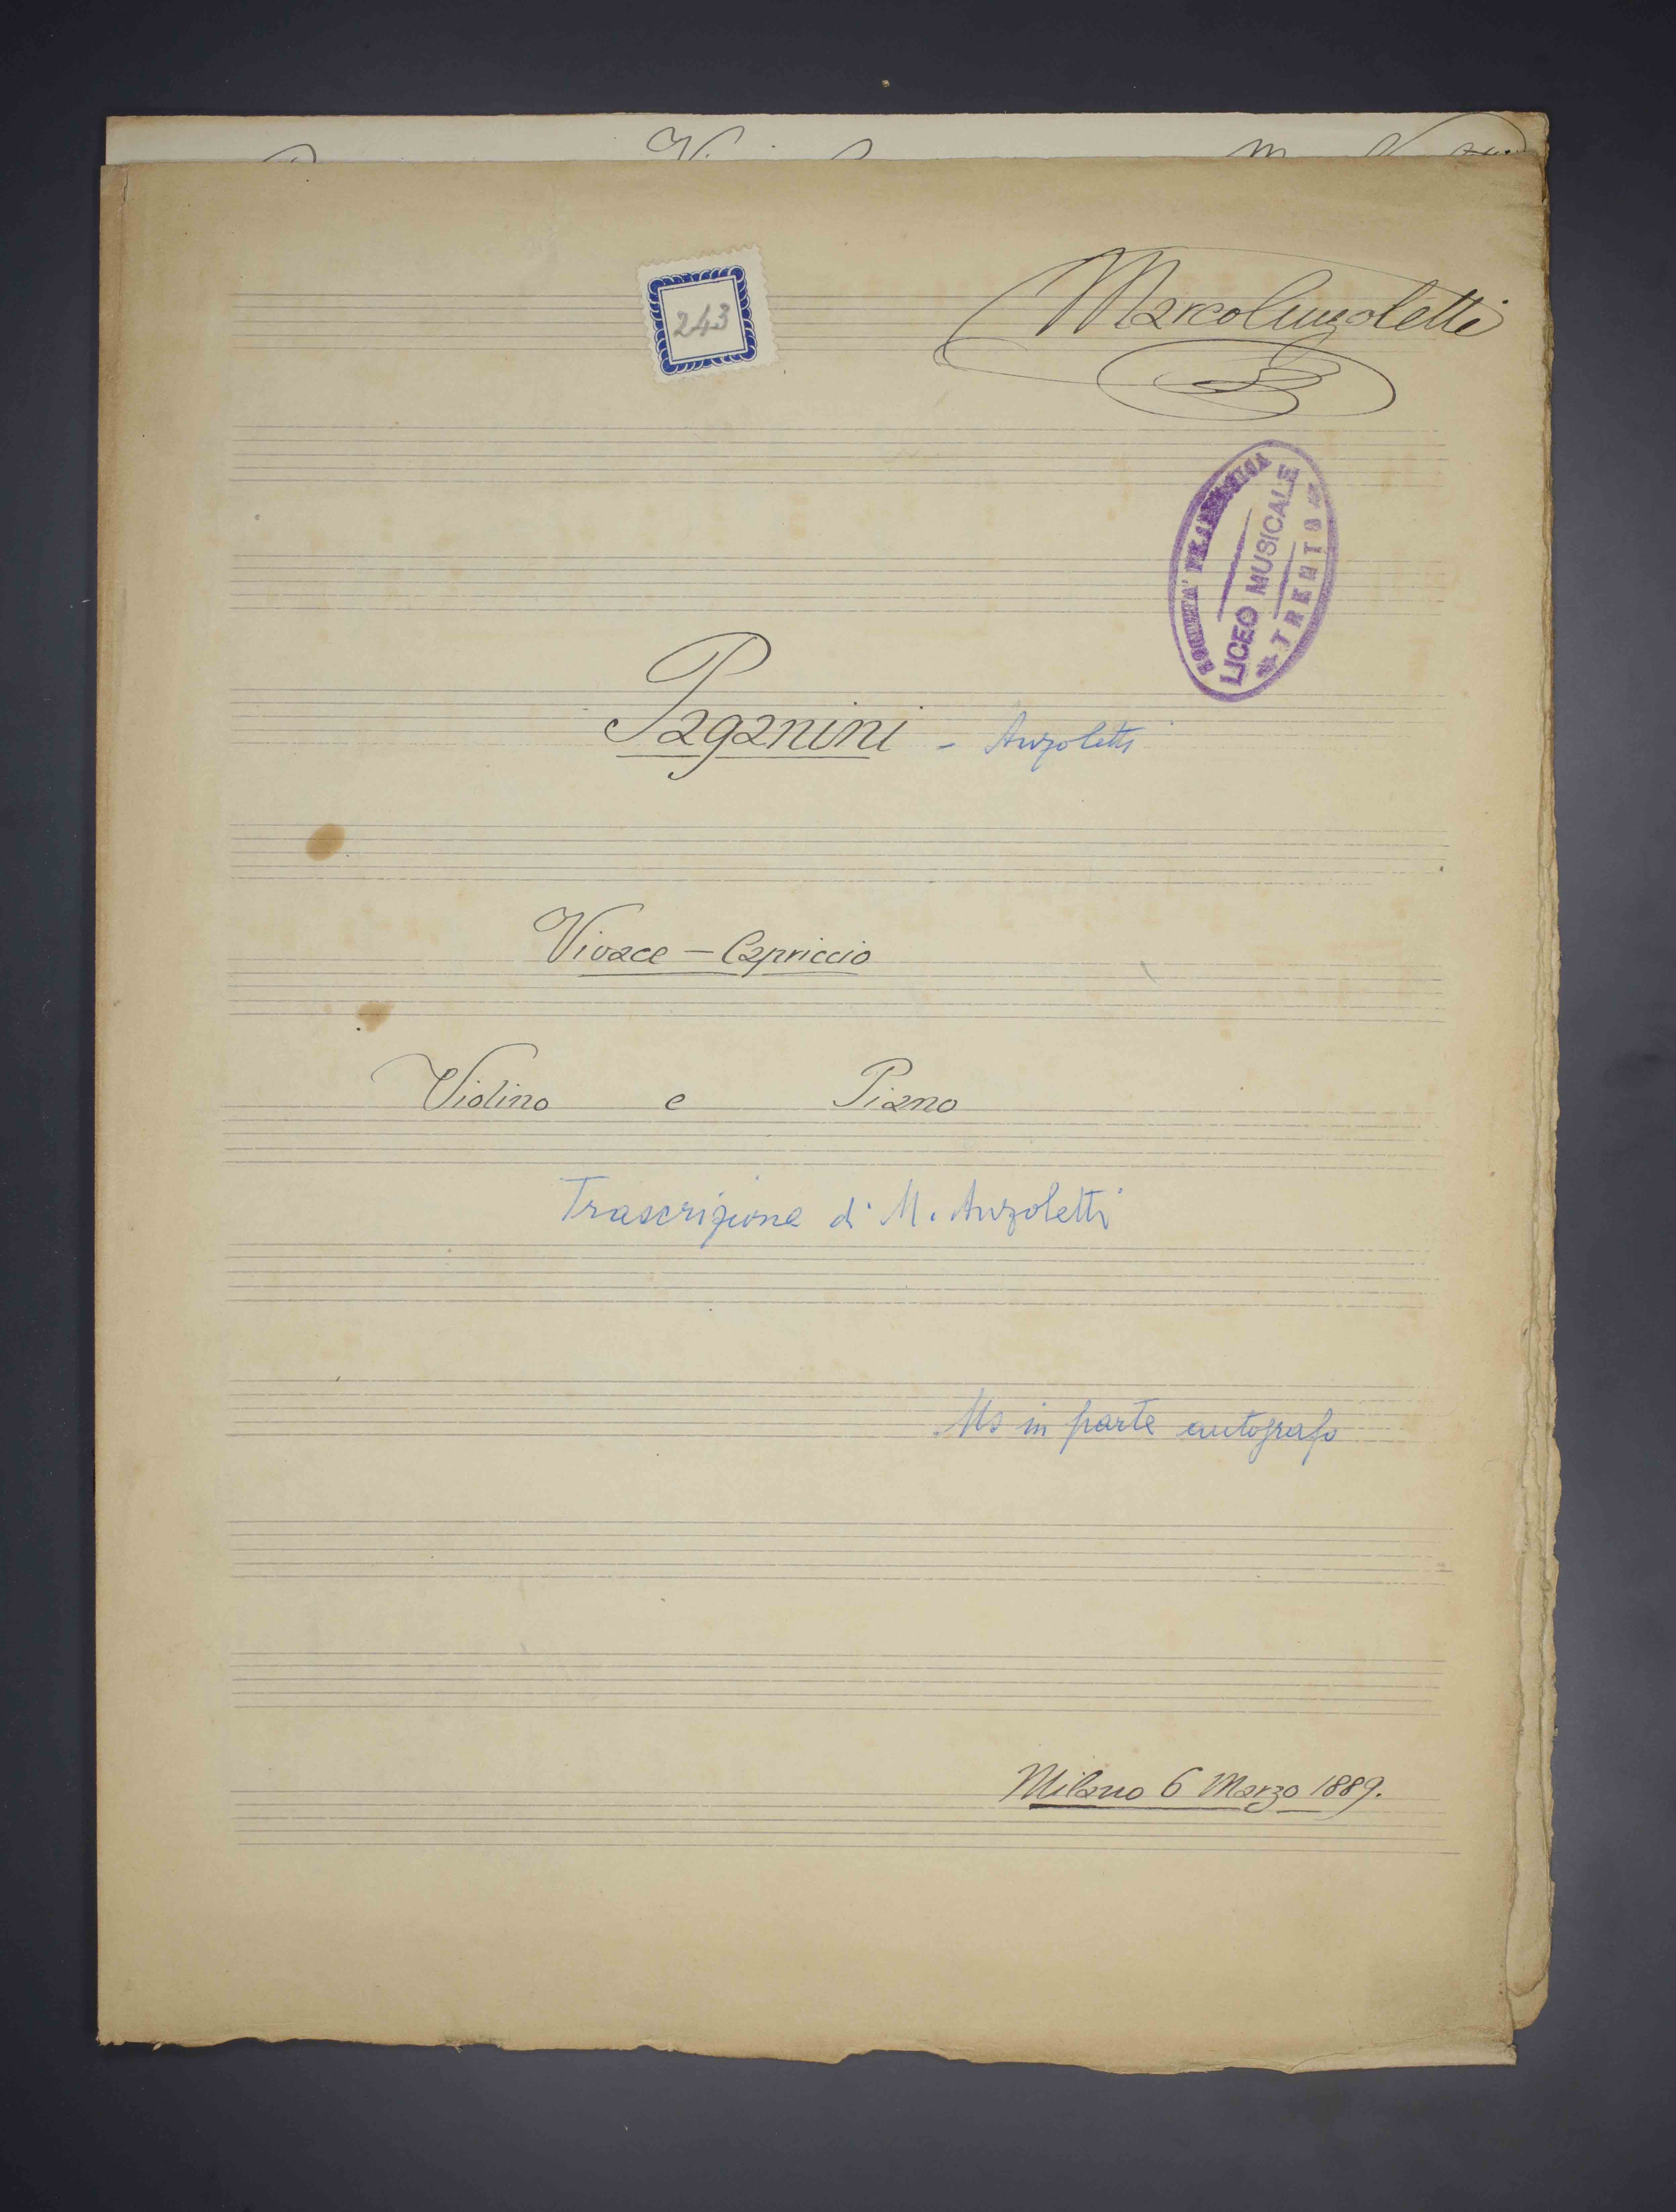 243
Marco Anzoletti
SOCIETA' FILARMONICA
LICEO MUSICALE
TRENTO
Paganini - Anzoletti
Vivace – Capriccio
Violino e Piano
Trascrizione di M. Anzoletti
Ms in parte autografo
Milano 6 Marzo 1889.